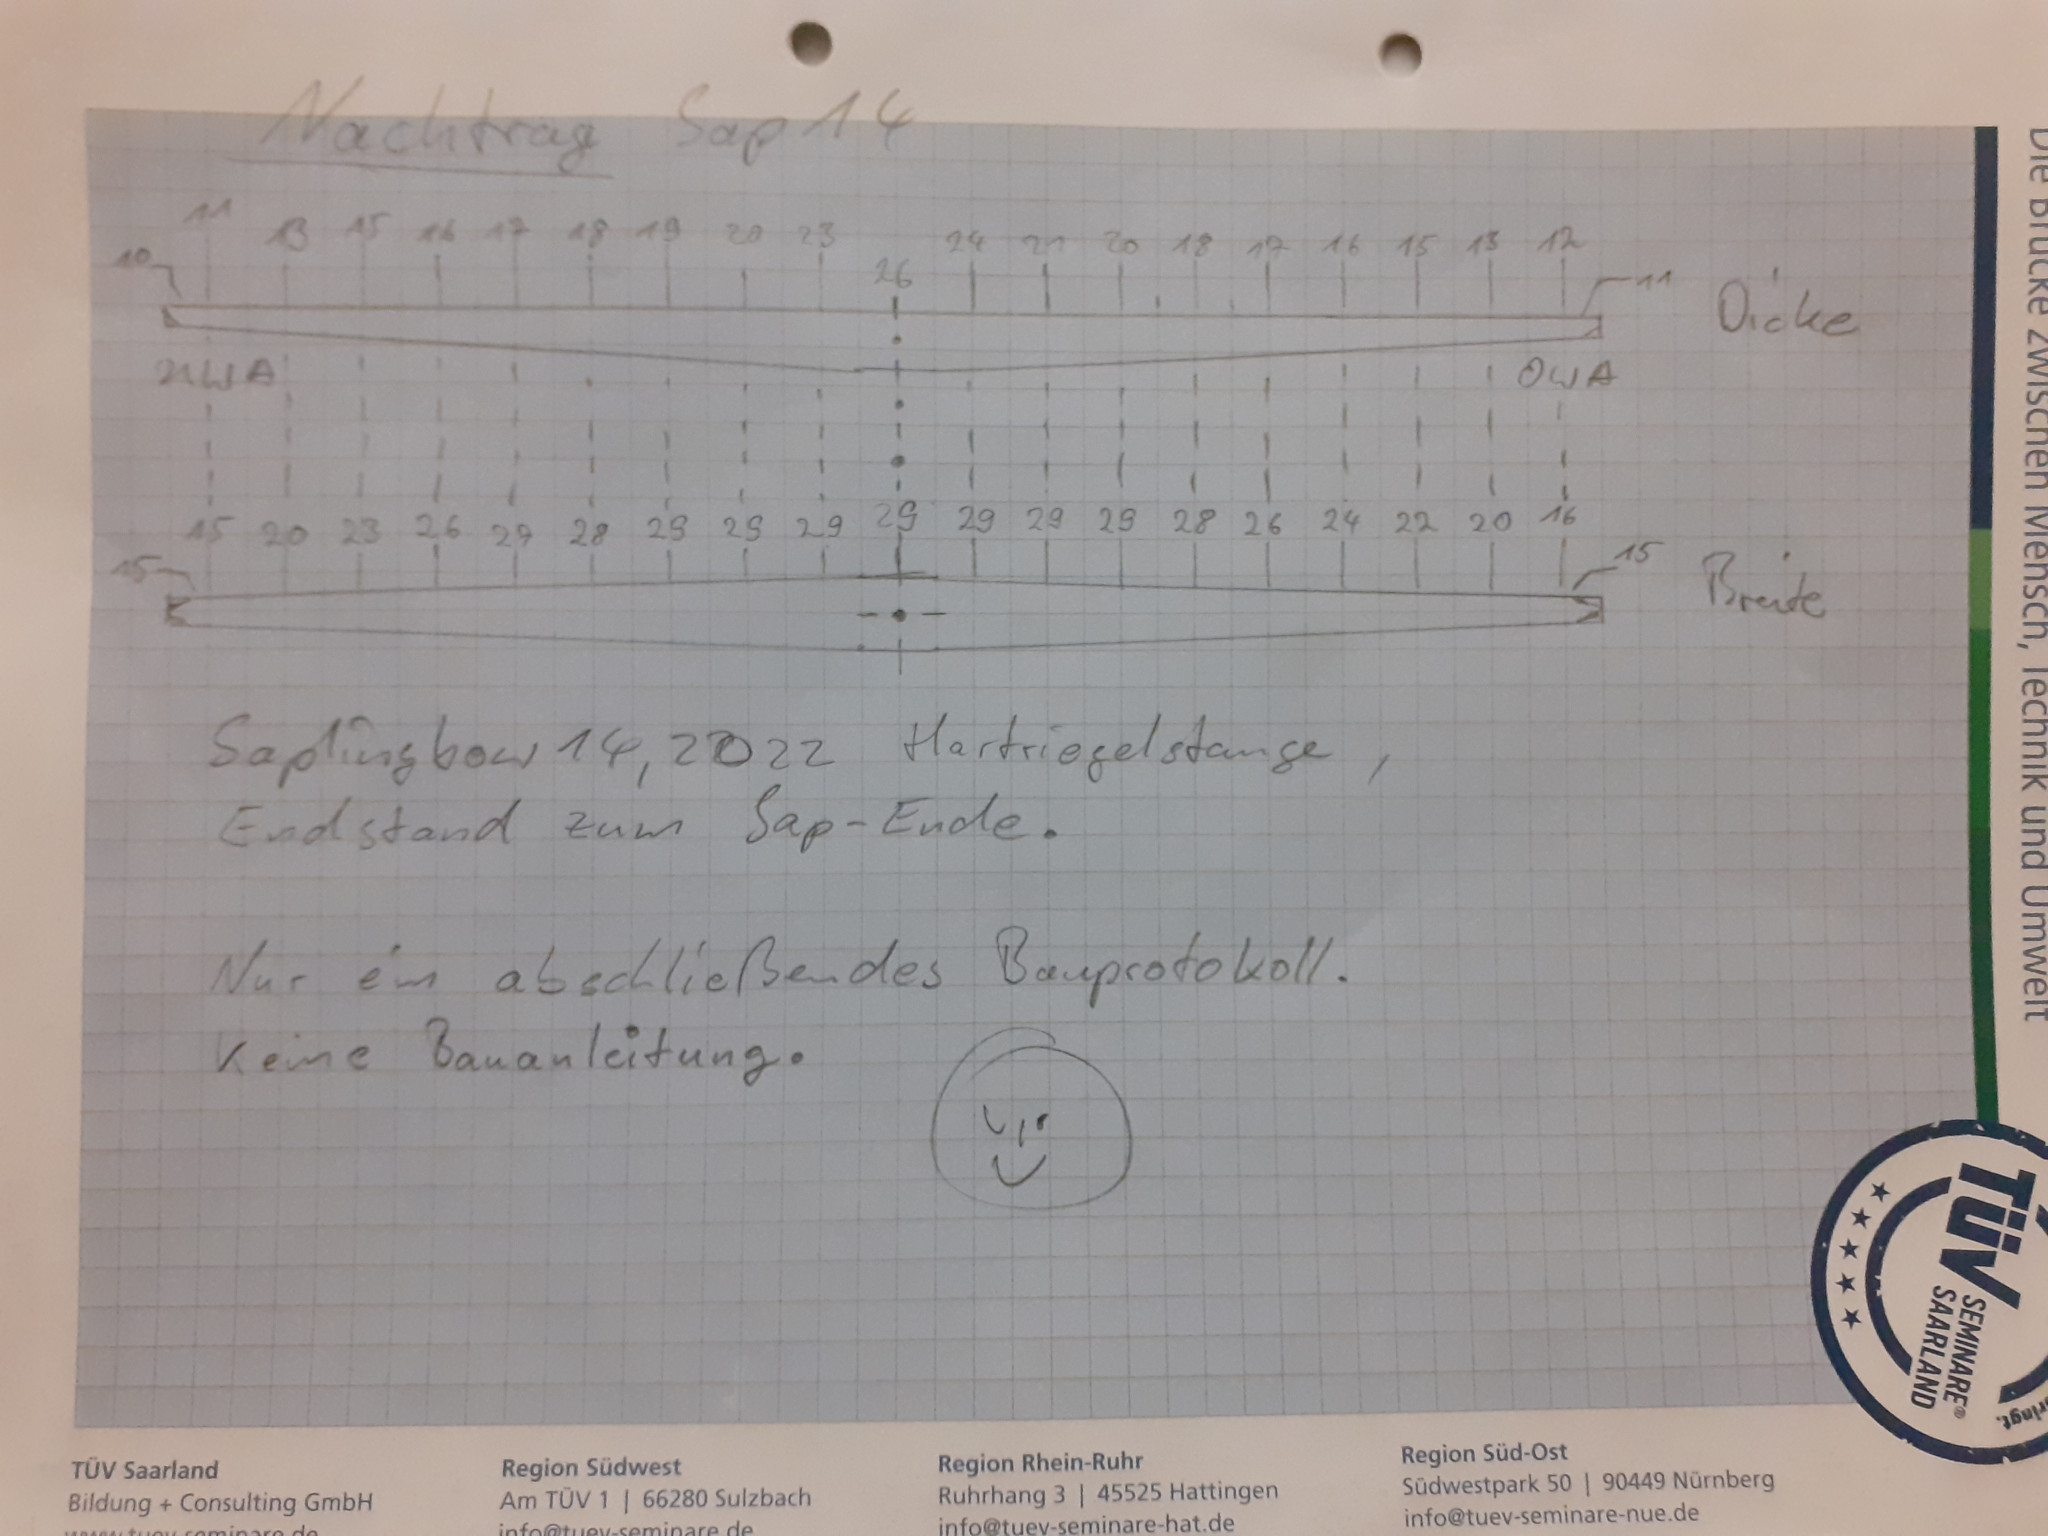 Nachtrag Sap 14
11 13 15 16 17 18 19 20 23 26 24 21 20 18 17 16 15 13 12
10 11 Dicke
UWA OWA
15 20 23 26 27 28 29 29 29 29 29 29 29 28 26 24 22 20 16
15 15 Breite
Saplingbow 14, 2022 Hartriegelstange,
Endstand zum Sap-Ende.
Nur ein abschließendes Bauprotokoll.
Keine Bauanleitung.
Die Brücke zwischen Mensch, Technik und Umwelt
TÜV
SEMINARE®
SAARLAND
TÜV Saarland
Bildung + Consulting GmbH
www.tuev-seminare.de
Region Südwest
Am TÜV 1 | 66280 Sulzbach
info@tuev-seminare.de
Region Rhein-Ruhr
Ruhrhang 3 | 45525 Hattingen
info@tuev-seminare-hat.de
Region Süd-Ost
Südwestpark 50 | 90449 Nürnberg
info@tuev-seminare-nue.de